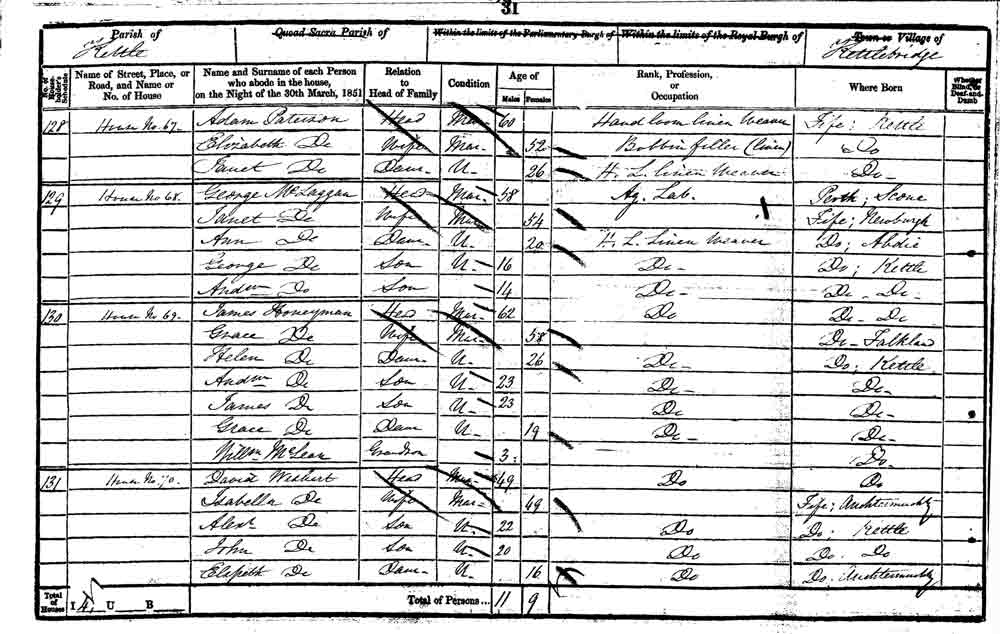 31
Parish of Kettle Quoad Sacra Parish of Within the limits of the Parliamentary Burgh of Within the limits of the Royal Burgh of Town or Village of Kettlebridge
No. of House-holder's Schedule Name of Street, Place, or Road, and Name or No. of House Name and Surname of each Person who abode in the house, on the Night of the 30th March, 1851 Relation to Head of Family Condition Age of Males Females Rank, Profession, or Occupation Where Born Whether Blind, or Deaf-and-Dumb
128 House No. 67. Adam Paterson Head Mar 60 Hand loom linen Weaver Fife; Kettle
Elizabeth Do Wife Mar- 52 Bobbin filler (linen) Do
Janet Do Daur- U- 26 H. L. linen Weaver Do-
129 House No 68. George McLaggan Head Mar- 58 Ag. Lab. Perth; Scone
Janet Do Wife Mar 54 Fife; Newburgh
Ann Do Daur- U. 20 H. L. Linen Weaver Do; Abdie
George Do Son U- 16 Do- Do; Kettle
Andw Do Son 14 Do- Do- Do-
130 House No 69. James Honeyman Head Mar- 62 Do Do- Do
Grace Do Wife Mar- 58 Do- Falkland
Helen Do Daur- U- 26 Do- Do; Kettle
Andw Do Son U- 23 Do- Do-
James Do Son U- 23 Do Do-
Grace Do Daur U- 19 Do- Do-
Willm McLean Grandson 3. Do.
131 House No. 70. David Head Mar- 49 Do Do
Isabella Do Wife Mar- 49 Fife; Auchtermuchty
Alexr Do Son U- 22 Do Do; Kettle
John Do Son U- 20 Do Do. Do
Elspeth Do Daur- U- 16 Do Do. Auchtermuchty
Total of Houses I 4 U B Total of Persons... 11 9